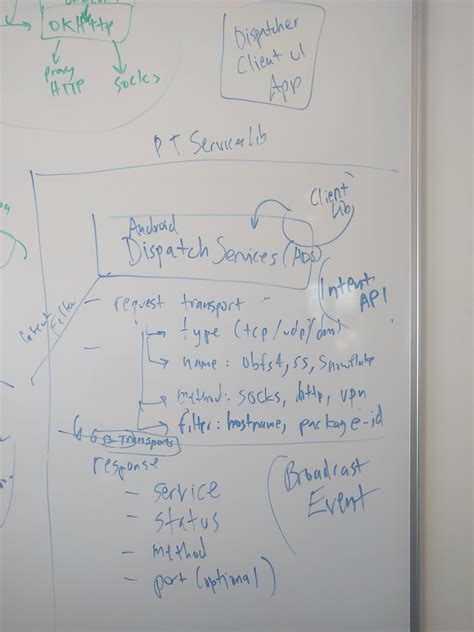 OKHttp
Proxy
HTTP
Socks
Dispatcher
Client UI
App
PT ServiceLib
Client
Lib
Android
Dispatch Services (ADS)
Intent
API
Filter
- request transport
type (tcp/udp/dns)
-
name: obfs4, ss, snowflake
method: socks, http, vpn
filter: hostname, package-id
Transports
response
- service
- status
- method
- port (optional)
Broadcast
Event